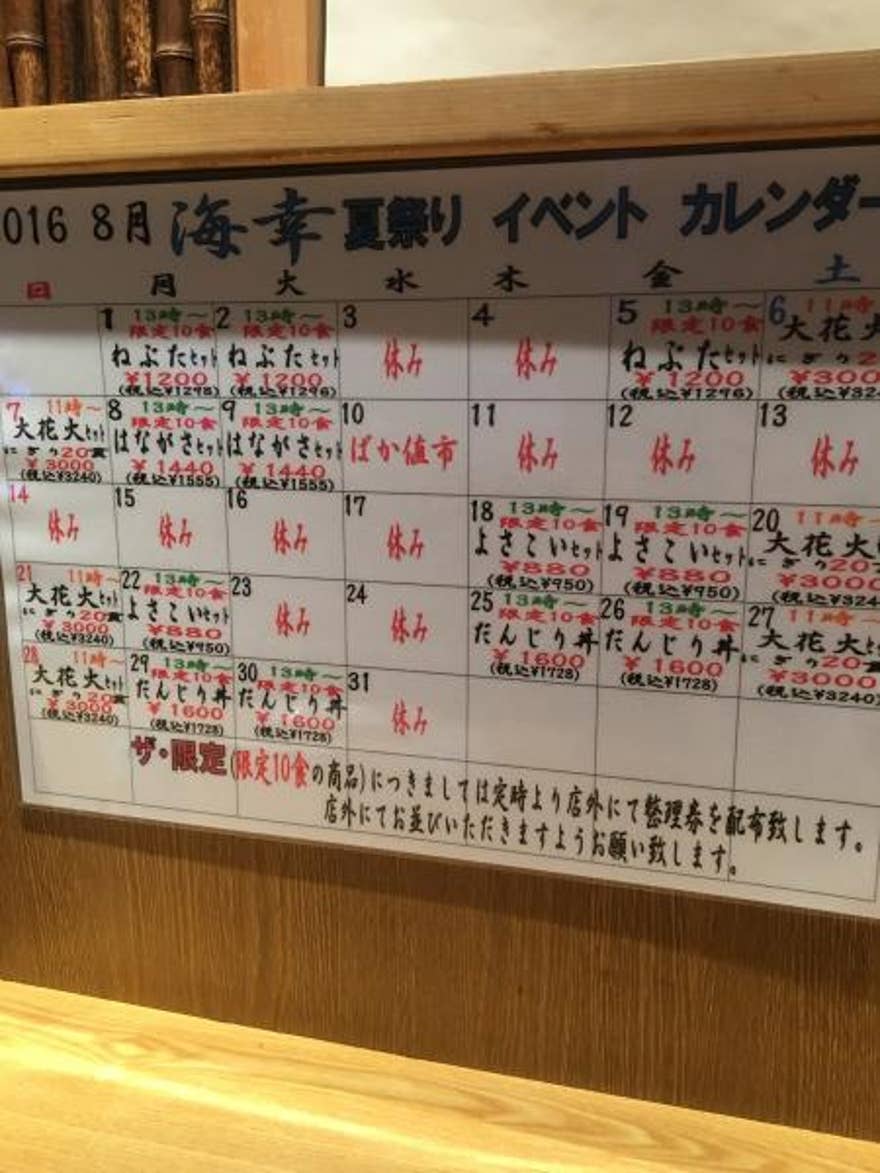 016 8月 海幸 夏祭り イベント カレンダー
日 月 火 水 木 金 土
1 13時〜
限定10食
ねぶたセット
¥1200
(税込¥1296)
2 13時〜
限定10食
ねぶたセット
¥1200
(税込¥1296)
3
休み
4
休み
5 13時〜
限定10食
ねぶたセット
¥1200
(税込¥1296)
6 11時〜
大花火
にぎり20
¥300
(税込¥324
7 11時〜
大花火セット
にぎり20食
¥3000
(税込¥3240)
8 13時〜
限定10食
はながさセット
¥1440
(税込¥1555)
9 13時〜
限定10食
はながさセット
¥1440
(税込¥1555)
10
ばか値市
11
休み
12
休み
13
休み
14
休み
15
休み
16
休み
17
休み
18 13時〜
限定10食
よさこいセット
¥880
(税込¥950)
19 13時〜
限定10食
よさこいセット
¥880
(税込¥950)
20 11時〜
大花火
にぎり20
¥3000
(税込¥324
21 11時〜
大花火セット
にぎり20食
¥3000
(税込¥3240)
22 13時〜
限定10食
よさこいセット
¥880
(税込¥950)
23
休み
24
休み
25 13時〜
限定10食
だんじり丼
¥1600
(税込¥1728)
26 13時〜
限定10食
だんじり丼
¥1600
(税込¥1728)
27 11時〜
大花火
にぎり20食
¥3000
(税込¥3240)
28 11時〜
大花火セット
にぎり20食
¥3000
(税込¥3240)
29 13時〜
限定10食
だんじり丼
¥1600
(税込¥1728)
30 13時〜
限定10食
だんじり丼
¥1600
(税込¥1728)
31
休み
ザ・限定(限定10食の商品)につきましては定時より店外にて整理券を配布致します。
店外にてお並びいただきますようお願い致します。